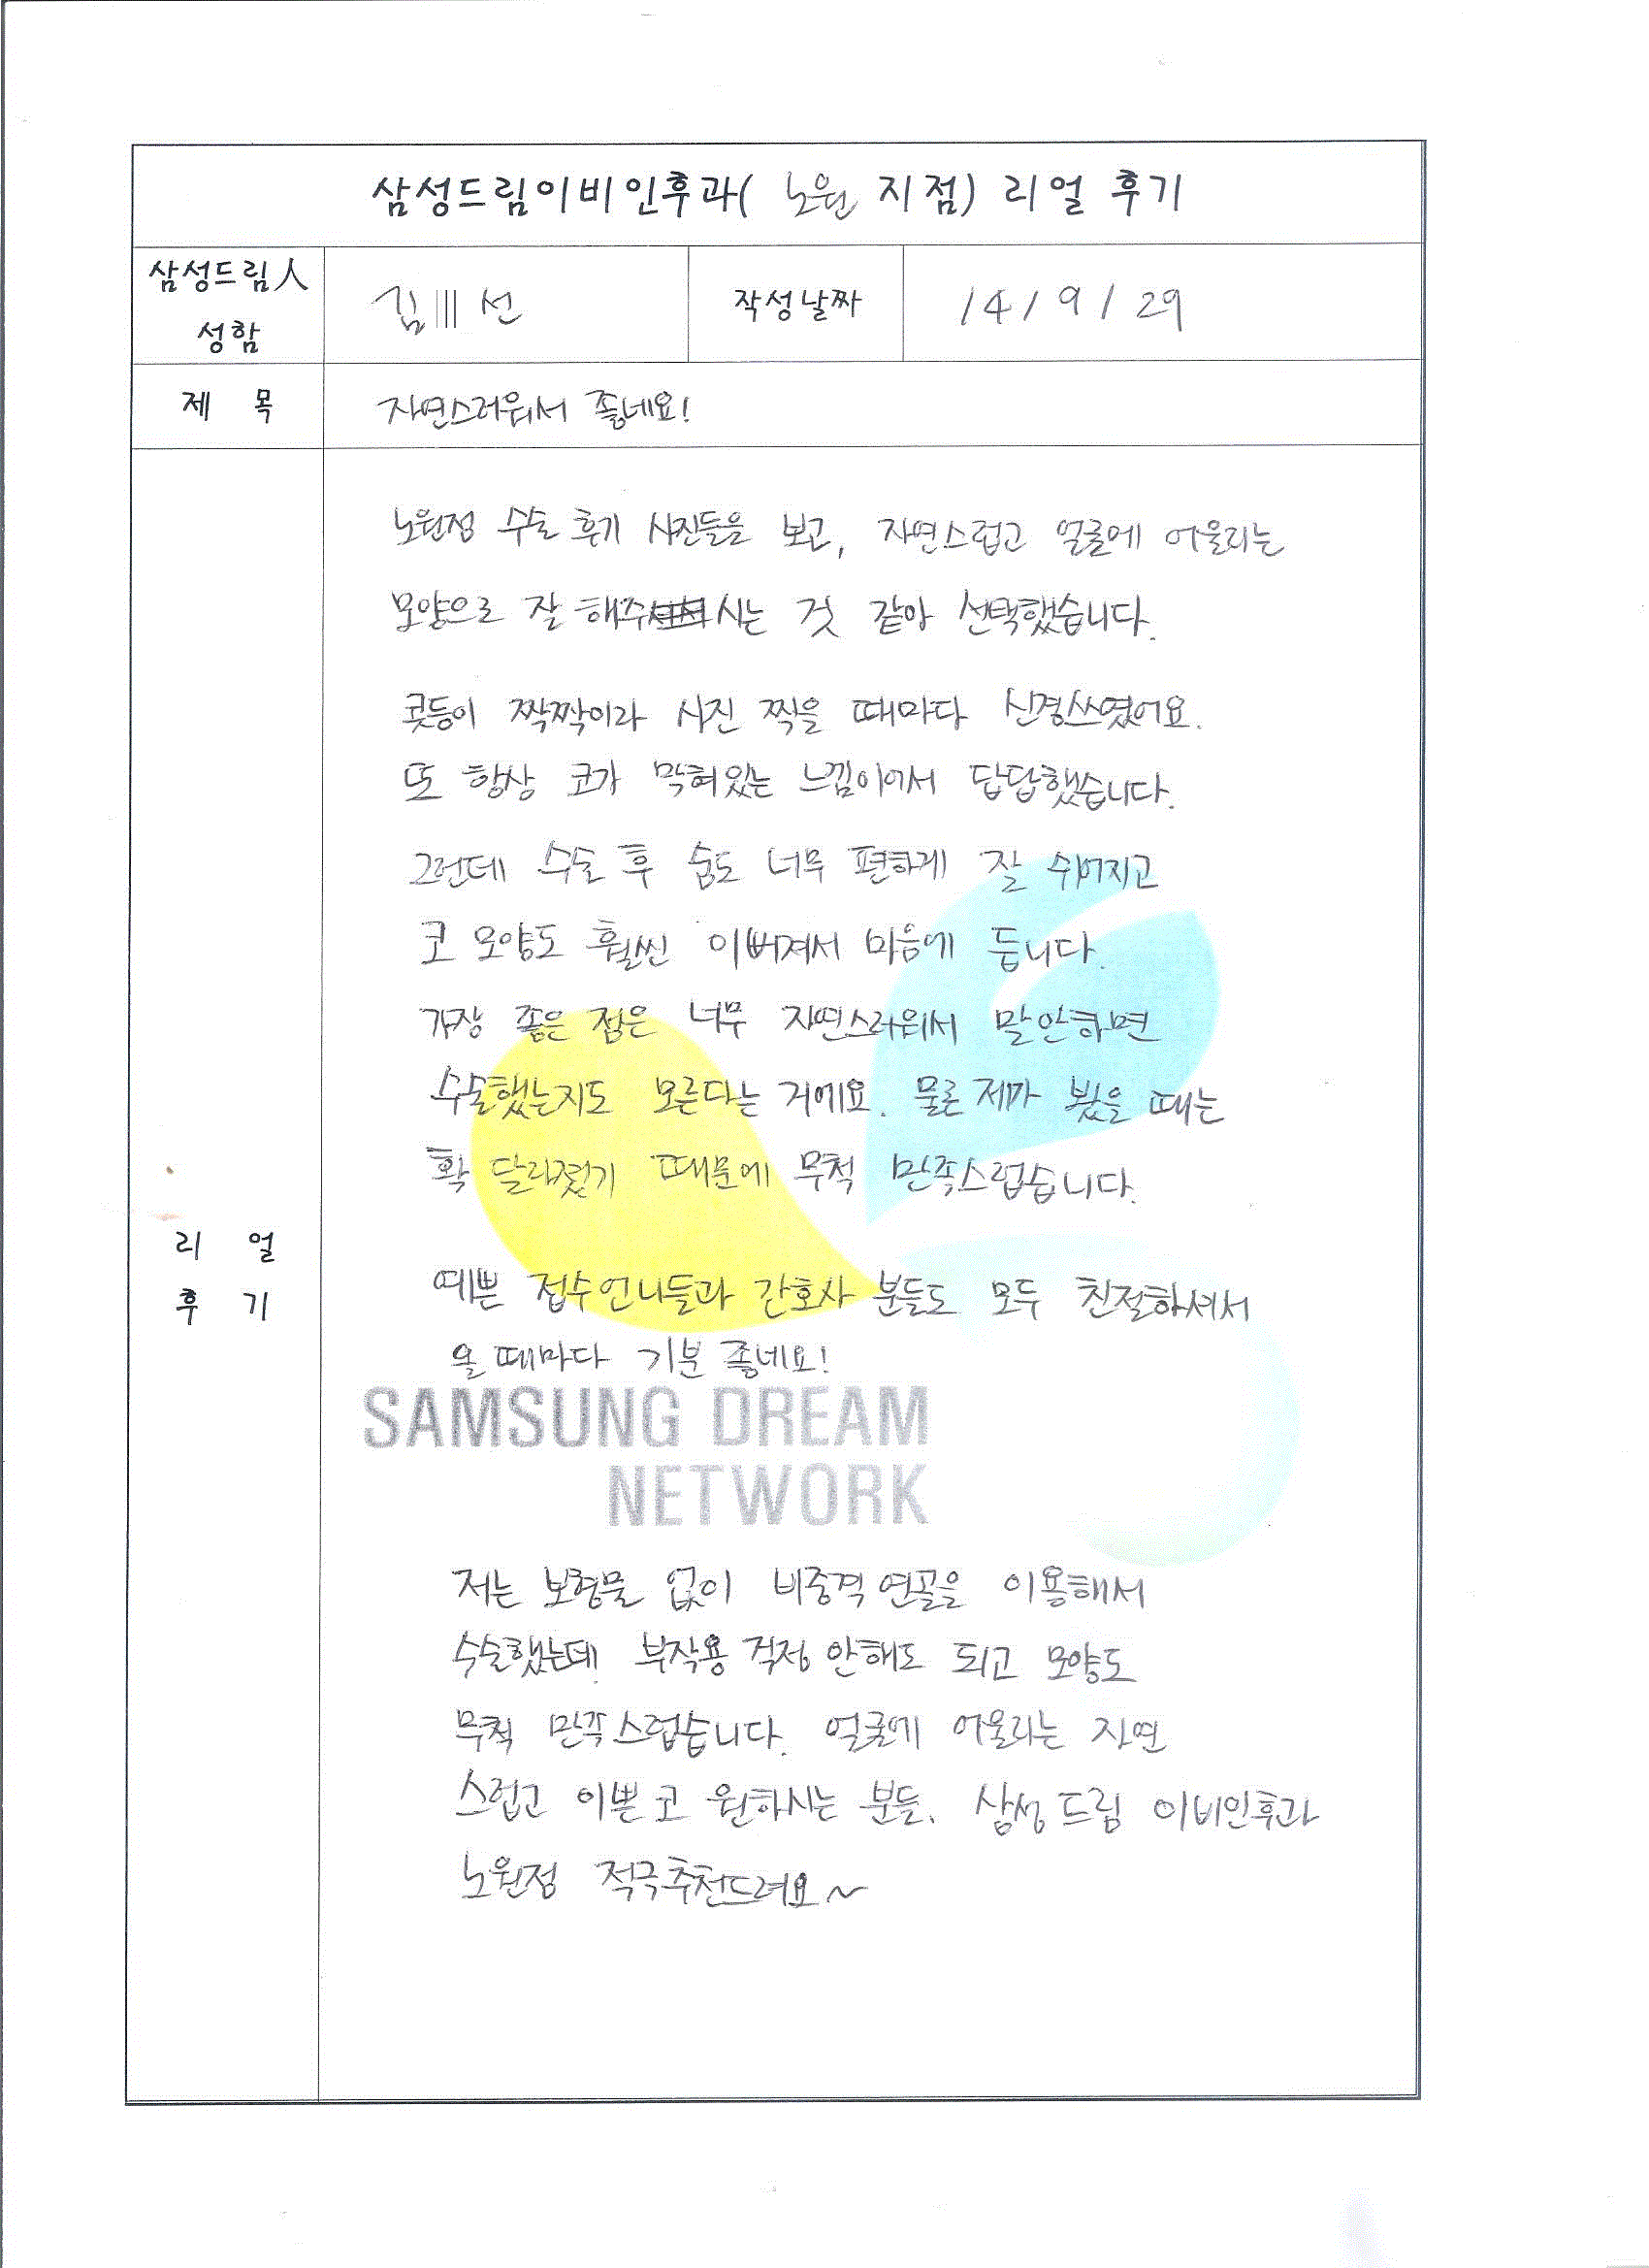 삼성드림이비인후과( 노원 지점) 리얼 후기
삼성드림人 성함
김 선
작성날짜
14/9/29
제 목
자연스러워서 좋네요!
리 얼 후 기
노원점 수술 후기 사진들을 보고, 자연스럽고 얼굴에 어울리는
모양으로 잘 해주시는 것 같아 선택했습니다.
콧등이 짝짝이라 사진 찍을 때마다 신경쓰였어요.
또 항상 코가 막혀있는 느낌이어서 답답했습니다.
그런데 수술 후 숨도 너무 편하게 잘 쉬어지고
코 모양도 훨씬 이뻐져서 마음에 듭니다.
가장 좋은 점은 너무 자연스러워서 말안하면
수술했는지도 모른다는 거에요. 물론 제가 봤을 때는
확 달라졌기 때문에 무척 만족스럽습니다.
예쁜 접수언니들과 간호사 분들도 모두 친절하셔서
올 때마다 기분 좋네요!
SAMSUNG DREAM
NETWORK
저는 보형물 없이 비중격 연골을 이용해서
수술했는데 부작용 걱정 안해도 되고 모양도
무척 만족스럽습니다. 얼굴에 어울리는 자연
스럽고 이쁜 코 원하시는 분들. 삼성드림 이비인후과
노원점 적극추천드려요~